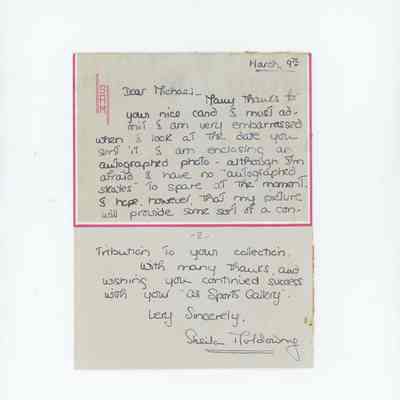 March 9th
SHM
Dear Michael -
Many thanks for
your nice card & must ad-
mit I am very embarrassed
when I look at the date you
sent it. I am enclosing an
autographed photo - although I'm
afraid I have no "autographed
skates" to spare at the moment.
I hope, however, that my picture
will provide some sort of a con-
- 2 -
tribution to your collection.
With many thanks, and
wishing you continued success
with your "Sports Gallery".
Very Sincerely,
Sheila